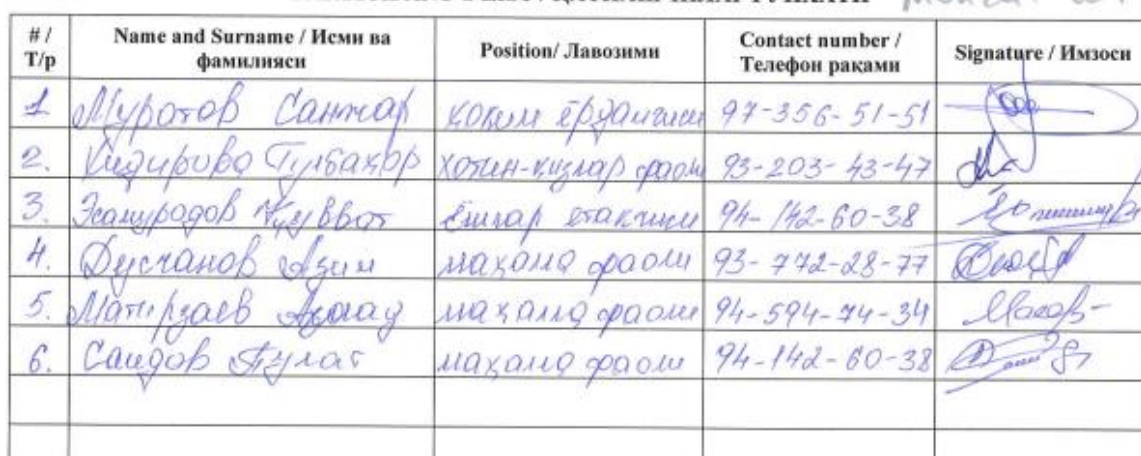 # / Т/р Name and Surname / Исми ва фамилияси Position/ Лавозими Contact number / Телефон рақами Signature / Имзоси
1 Муротов Санжар ҳоким ёрдамчиси 97-356-51-51
2. Гулбаҳор хотин-қизлар фаоли 93-203-43-47
3. Эсамурадов Қувват ёшлар етакчиси 94-142-60-38
4. Дусчанов Азим маҳалла фаоли 93-772-28-77
5. маҳалла фаоли 94-594-74-34
6. Саидов Пулат маҳалла фаоли 94-142-60-38